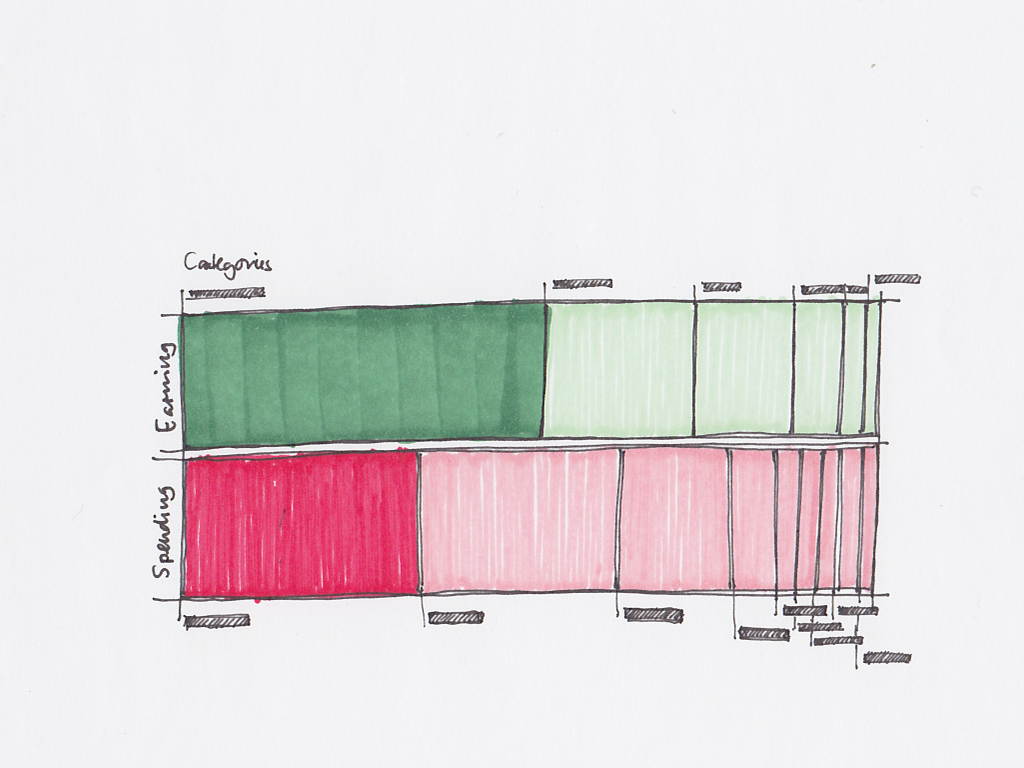 Categories
Earning
Spending